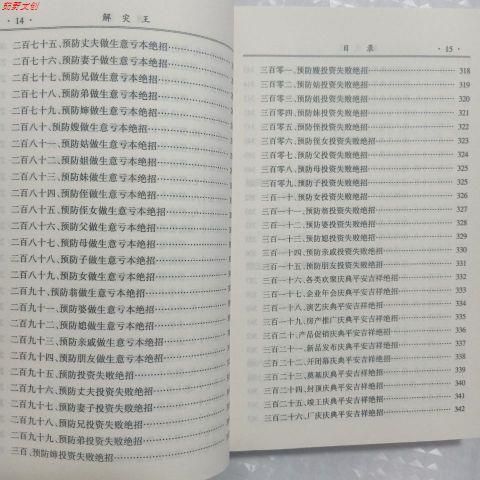 ·14·
解灾王
二百七十五、预防丈夫做生意亏本绝招
二百七十六、预防妻子做生意亏本绝招
二百七十七、预防兄做生意亏本绝招
二百七十八、预防弟做生意亏本绝招
二百七十九、预防婶做生意亏本绝招
二百八十、预防嫂做生意亏本绝招
二百八十一、预防姑做生意亏本绝招
二百八十二、预防姐做生意亏本绝招
二百八十三、预防妹做生意亏本绝招
二百八十四、预防侄做生意亏本绝招
二百八十五、预防侄女做生意亏本绝招
二百八十六、预防父做生意亏本绝招
二百八十七、预防母做生意亏本绝招
二百八十八、预防子做生意亏本绝招
二百八十九、预防女做生意亏本绝招
二百九十、预防翁做生意亏本绝招
二百九十一、预防婆做生意亏本绝招
二百九十二、预防媳做生意亏本绝招
二百九十三、预防亲戚做生意亏本绝招
二百九十四、预防朋友做生意亏本绝招
二百九十五、预防投资失败绝招
二百九十六、预防丈夫投资失败绝招
二百九十七、预防妻子投资失败绝招
二百九十八、预防兄投资失败绝招
二百九十九、预防弟投资失败绝招
三百、预防婶投资失败绝招
目录
·15·
三百零一、预防嫂投资失败绝招 318
三百零二、预防姑投资失败绝招 319
三百零三、预防姐投资失败绝招 320
三百零四、预防妹投资失败绝招 321
三百零五、预防侄投资失败绝招 322
三百零六、预防侄女投资失败绝招 323
三百零七、预防父投资失败绝招 324
三百零八、预防母投资失败绝招 325
三百零九、预防子投资失败绝招 325
三百一十、预防女投资失败绝招 326
三百一十一、预防翁投资失败绝招 327
三百一十二、预防婆投资失败绝招 328
三百一十三、预防媳投资失败绝招 329
三百一十四、预防亲戚投资失败绝招 330
三百一十五、预防朋友投资失败绝招 331
三百一十六、各类欢聚庆典平安吉祥绝招 332
三百一十七、企业年会庆典平安吉祥绝招 333
三百一十八、演艺庆典平安吉祥绝招 334
三百一十九、房产推广庆典平安吉祥绝招 335
三百二十、产品促销庆典平安吉祥绝招 337
三百二十一、新品发布庆典平安吉祥绝招 338
三百二十二、开闭幕庆典平安吉祥绝招 339
三百二十三、奠基庆典平安吉祥绝招 340
三百二十四、封顶庆典平安吉祥绝招 341
三百二十五、竣工庆典平安吉祥绝招 342
三百二十六、厂庆庆典平安吉祥绝招 342